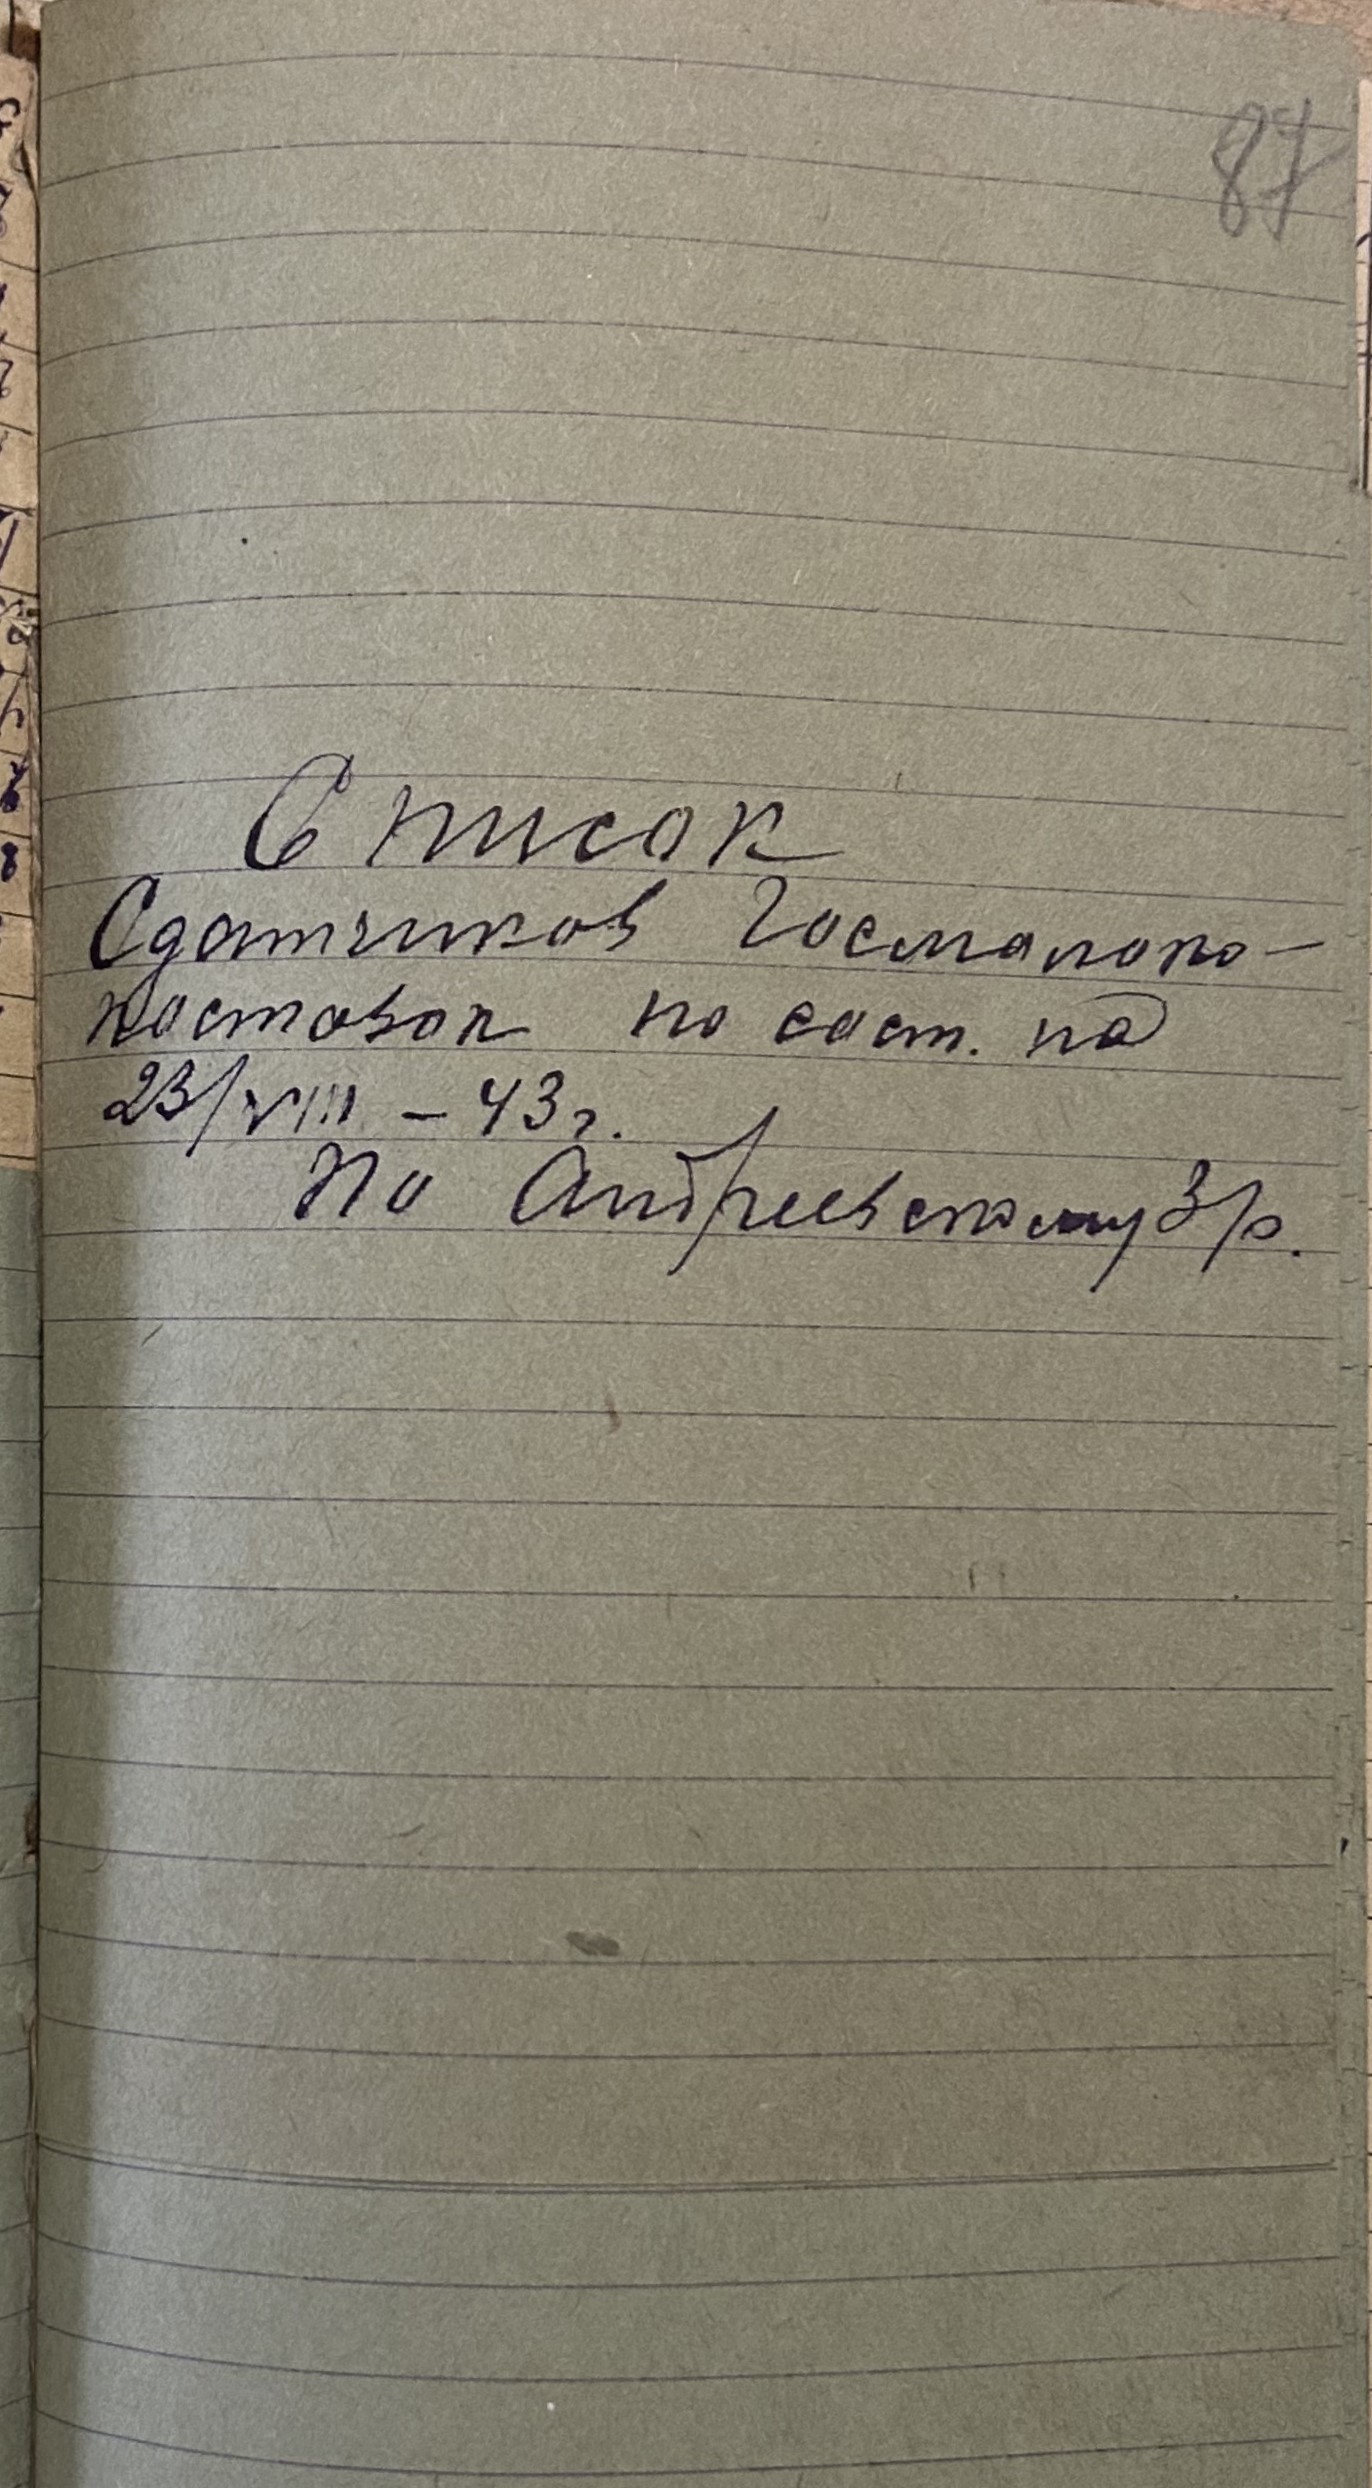 87
Список
Сдатчиков Госмолоко-
поставок по сост. на
23/VIII – 43 г.
По Андреевскому З/р.